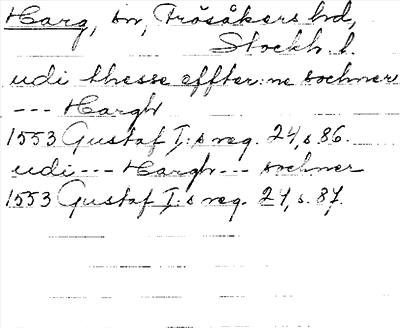 Harg, sn, Frösåkers hd,
Stockh. l.
udi thesse effter:ne sochner
--- Hargh
1553 Gustaf I:s reg. 24, s 86.
udi --- Hargh --- sochner
1553 Gustaf I:s reg. 24, s. 87.